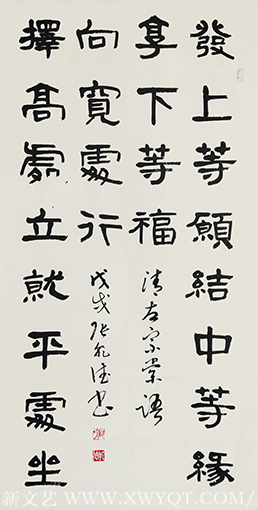 發上等願結中等緣
享下等福
清左宗棠語
擇高處立就平處坐
向寬處行
戊戌張德書
新文艺 WWW.XWYQT.COM